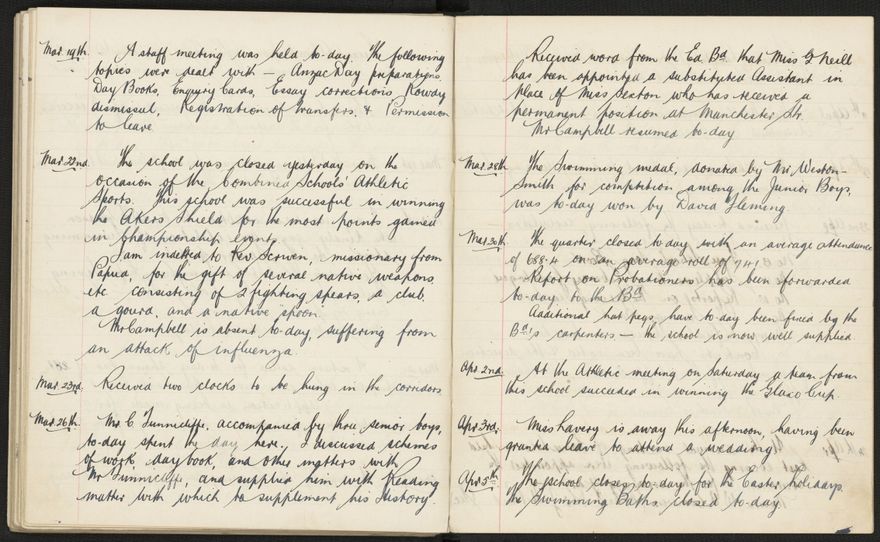 Mar. 19th. A staff meeting was held to-day. The following
topics were dealt with — Anzac Day preparations,
Day Books, Enquiry Cards, Essay corrections, Rowdy
dismissal, Registration of transfers, & Permission
to leave.
Mar. 22nd. The school was closed yesterday on the
occasion of the Combined Schools' Athletic
Sports. This school was successful in winning
the Akers Shield for the most points gained
in Championship events.
I am indebted to Rev Scrivin, missionary from
Papua, for the gift of several native weapons
etc consisting of 2 fighting spears, a club,
a gourd, and a native spoon.
Mr Campbell is absent to-day, suffering from
an attack of influenza.
Mar. 23rd. Received two clocks to be hung in the corridors.
Mar. 26th. Mr. C Tunnicliffe, accompanied by three senior boys,
to-day spent the day here. I discussed schemes
of work, daybook, and other matters with
Mr Tunnicliffe, and supplied him with Reading
matter with which to supplement his History.
Received word from the Ed. Bd. that Miss G Neill
has been appointed a substituted Assistant in
place of Miss Sexton who has received a
permanent position at Manchester St.
Mr Campbell resumed to-day
Mar. 28th The Swimming medal, donated by Mr Weston-
Smith for competition among the Junior Boys,
was to-day won by David Fleming.
Mar. 30th. The quarter closed to day with an average attendance
of 688.4 on an average roll of 741.
Report on Probationers has been forwarded
to-day to the Bd.
Additional hat pegs, have to-day been fixed by the
Bd's carpenters — the school is now well supplied.
Apr. 2nd. At the Athletic meeting on Saturday a team from
this school succeeded in winning the Glaxo Cup.
Apr. 3rd. Miss Havery is away this afternoon, having been
granted leave to attend a wedding.
Apr. 5th The school closes to-day for the Easter holidays.
The Swimming Baths closed to-day.